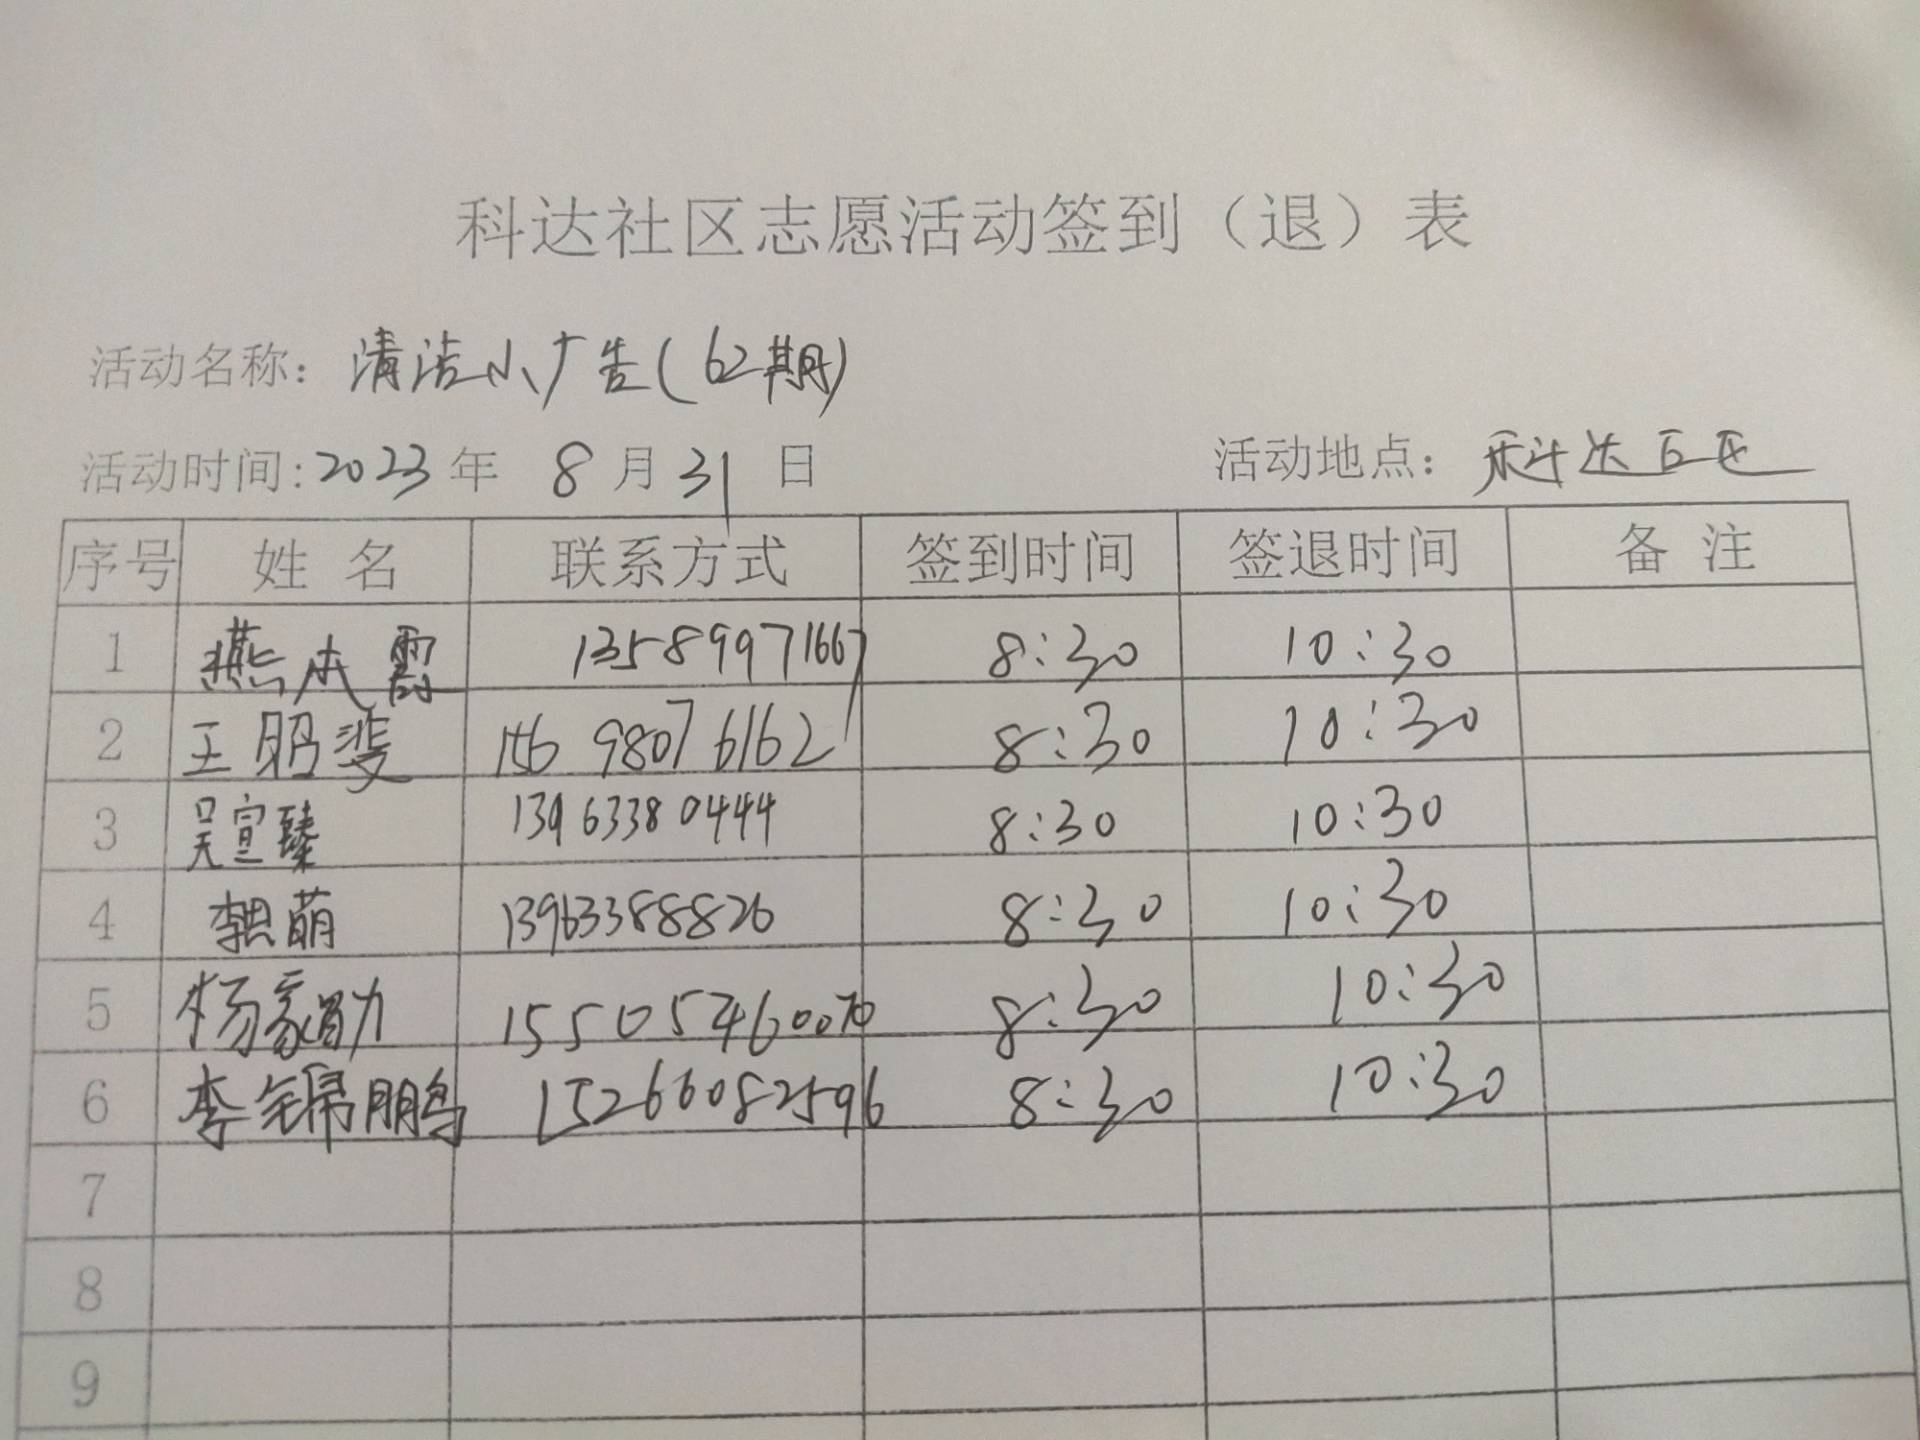 科达社区志愿活动签到（退）表
活动名称：清洁小广告(62期)
活动时间:2023年 8月31日 活动地点：科达小区
序号 姓名 联系方式 签到时间 签退时间 备注
1 燕本霞 13589971667 8:30 10:30
2 王昭斐 15698076162 8:30 10:30
3 吴宣臻 13963380444 8:30 10:30
4 李萌 13963388826 8:30 10:30
5 杨家勋 15505460070 8:30 10:30
6 李锦鹏 15266082596 8:30 10:30
7
8
9